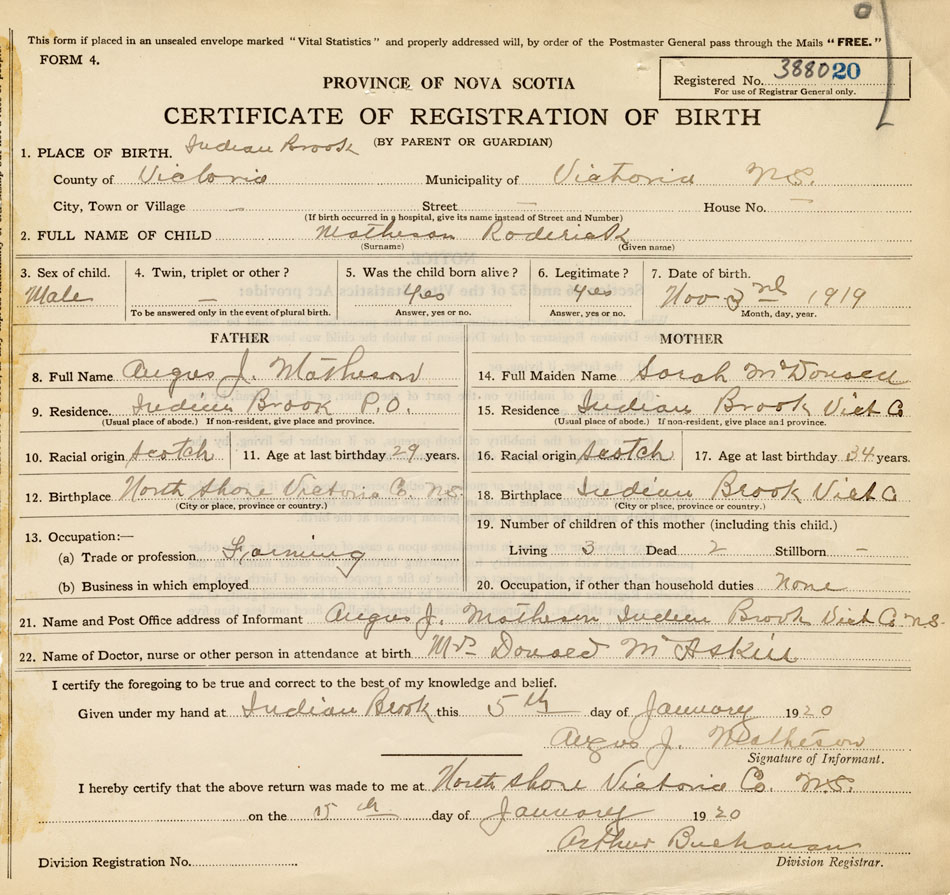 This form if placed in an unsealed envelope marked "Vital Statistics" and properly addressed will, by order of the Postmaster General pass through the Mails "FREE."
FORM 4.
Registered No. 388020
For use of Registrar General only.
PROVINCE OF NOVA SCOTIA
CERTIFICATE OF REGISTRATION OF BIRTH
(BY PARENT OR GUARDIAN)
1. PLACE OF BIRTH. Indian Brook
County of Victoria Municipality of Victoria N.S.
City, Town or Village — Street — House No. —
(If birth occurred in a hospital, give its name instead of Street and Number)
2. FULL NAME OF CHILD Matheson Roderick
(Surname) (Given name)
3. Sex of child. Male
4. Twin, triplet or other? —
To be answered only in the event of plural birth.
5. Was the child born alive? yes
Answer, yes or no.
6. Legitimate? yes
Answer, yes or no.
7. Date of birth. Nov 3rd 1919
Month, day, year.
FATHER
8. Full Name Angus J. Matheson
9. Residence. Indian Brook P.O.
(Usual place of abode.) If non-resident, give place and province.
10. Racial origin Scotch 11. Age at last birthday 29 years.
12. Birthplace North Shore Victoria Co. N.S.
(City or place, province or country.)
13. Occupation:—
(a) Trade or profession Farming
(b) Business in which employed
MOTHER
14. Full Maiden Name Sarah McDonald
15. Residence Indian Brook Vict Co
(Usual place of abode.) If non-resident, give place and province.
16. Racial origin Scotch 17. Age at last birthday 34 years.
18. Birthplace Indian Brook Vict Co
(City or place, province or country.)
19. Number of children of this mother (including this child.)
Living 3 Dead 2 Stillborn —
20. Occupation, if other than household duties None
21. Name and Post Office address of Informant Angus J. Matheson Indian Brook Vict Co. N.S.
22. Name of Doctor, nurse or other person in attendance at birth Mrs Donald McAskill
I certify the foregoing to be true and correct to the best of my knowledge and belief.
Given under my hand at Indian Brook this 5th day of January 1920
Angus J. Matheson
Signature of Informant.
I hereby certify that the above return was made to me at North Shore Victoria Co. N.S.
on the 15th day of January 1920
Arthur Buchanan
Division Registration No. Division Registrar.